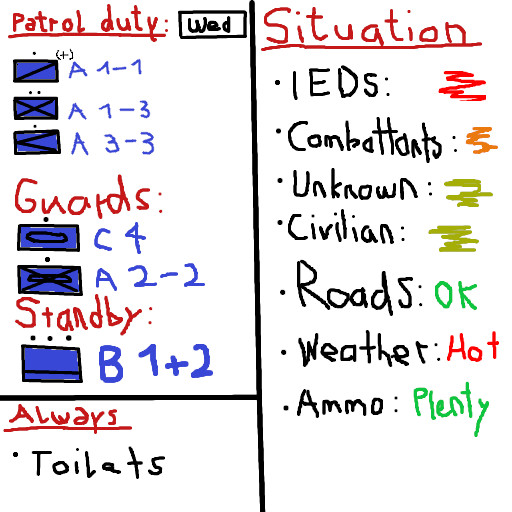 Patrol duty: Wed
(+)
A 1-1
A 1-3
A 3-3
Guards:
C 4
A 2-2
Standby:
B 1+2
Always
· Toilats
Situation
· IEDs:
· Combattants:
· Unknown:
· Civilian:
· Roads: OK
· Weather: Hot
· Ammo: Plenty